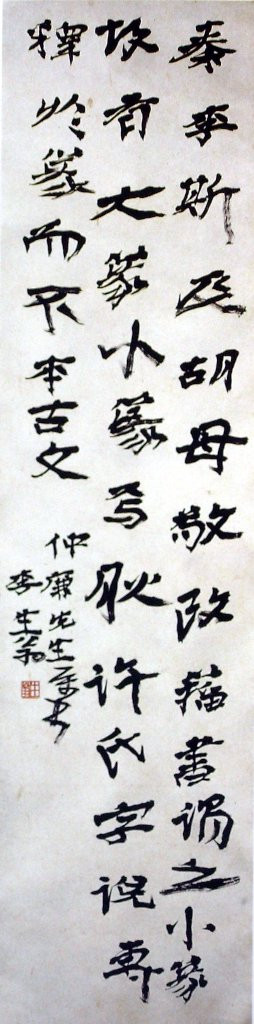 秦李斯及胡母敬改籀書謂之小篆
故有大篆小篆焉肰許氏字說專
釋於篆而不本古文
仲廉先生
李生翁